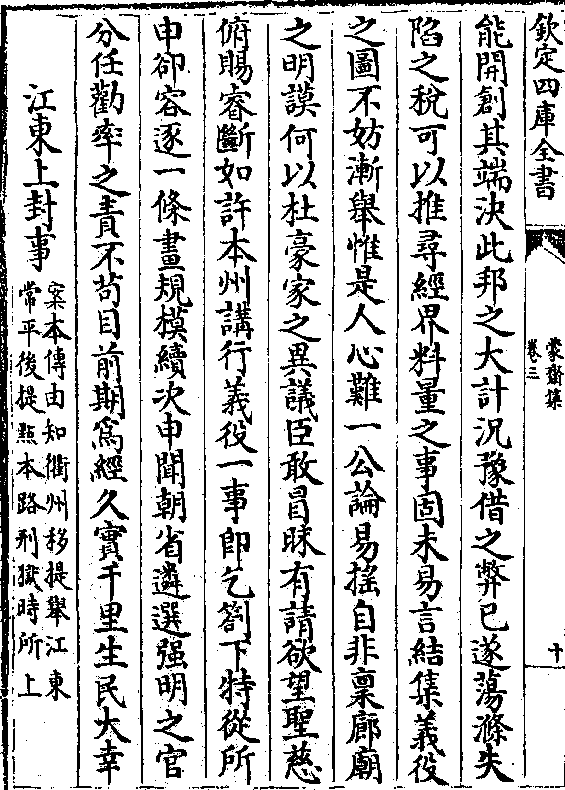 欽定四庫全書
蒙齋集
卷三
十
能開創其端决此邦之大計况豫借之弊已遂蕩滌失
陷之稅可以推尋經界料量之事固未易言結集義役
之圖不妨漸舉惟是人心難一公論易搖自非稟廊廟
之明謨何以杜豪家之異議臣敢冒昧有請欲望聖慈
俯賜睿斷如許本州講行義役一事即乞劄下特從所
申卻容逐一條畫規模續次申聞朝省遴選强明之官
分任勸率之責不苟目前期為經久實千里生民大幸
江東上封事
案本傳由知衢州移提舉江東
常平後提㸃本路刑獄時所上